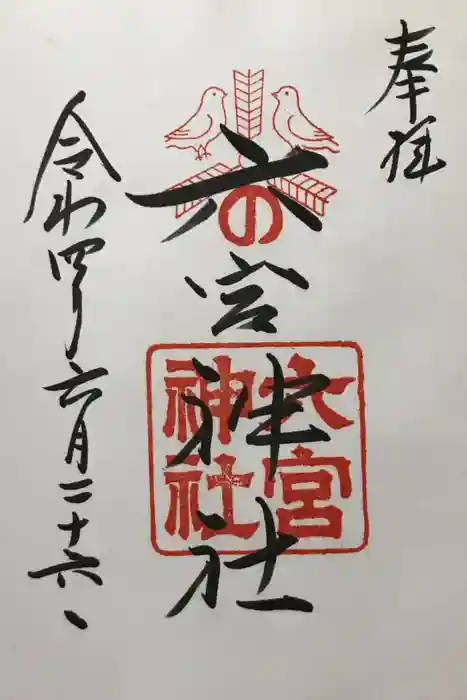 奉拝
六の宮神社
六宮
神社
令和四年六月二十六日